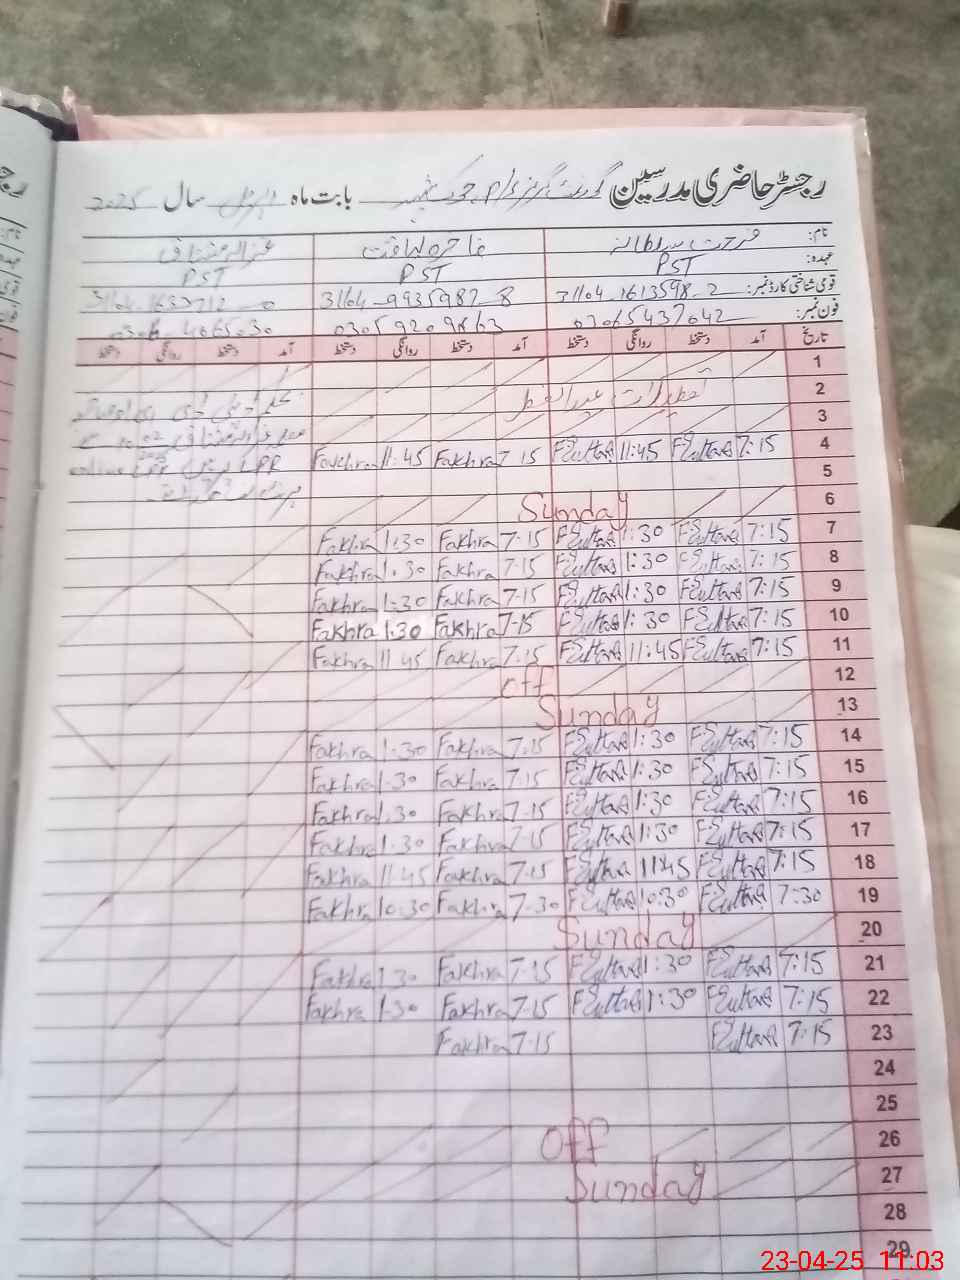 رجسٹر حاضری مدرسین گورنمنٹ گرلز P/S چک بابت ماہ اپریل سال 2025
نام: فرحت سلطانہ فاخرہ لیاقت غزالہ مشتاق
عہدہ: PST PST PST
قومی شناختی کارڈ نمبر: 31104-1613598-2 31104-9935987-8
فون نمبر: 03065437042 0305 9209863
تاریخ آمد دستخط روانگی دستخط آمد دستخط روانگی دستخط آمد دستخط روانگی دستخط
1
2 تعطیلات عید الفطر
3
4 7:15 FSultana 11:45 FSultana 7-15 Fakhra 11:45 Fakhra
5
6 Sunday
7 7:15 FSultana 1:30 FSultana 7-15 Fakhra 1:30 Fakhra
8 7:15 FSultana 1:30 FSultana 7-15 Fakhra 1.30 Fakhra
9 7:15 FSultana 1:30 FSultana 7-15 Fakhra 1:30 Fakhra
10 7:15 FSultana 1:30 FSultana 7-15 Fakhra 1.30 Fakhra
11 7:15 FSultana 11:45 FSultana 7.15 Fakhra 11 45 Fakhra
12 Off
13 Sunday
14 7:15 FSultana 1:30 FSultana 7-15 Fakhra 1-30 Fakhra
15 7:15 FSultana 1:30 FSultana 7-15 Fakhra 1.30 Fakhra
16 7:15 FSultana 1:30 FSultana 7-15 Fakhra 1.30 Fakhra
17 7:15 FSultana 1:30 FSultana 7-15 Fakhra 1.30 Fakhra
18 7:15 FSultana 11:45 FSultana 7-15 Fakhra 11.45 Fakhra
19 7:30 FSultana 10:30 FSultana 7-30 Fakhra 10:30 Fakhra
20 Sunday
21 7:15 FSultana 1:30 FSultana 7-15 Fakhra 1.30 Fakhra
22 7:15 FSultana 1:30 FSultana 7-15 Fakhra 1-30 Fakhra
23 7:15 FSultana 7-15 Fakhra
24
25
26 Off
27 Sunday
28
29
23-04-25 11:03